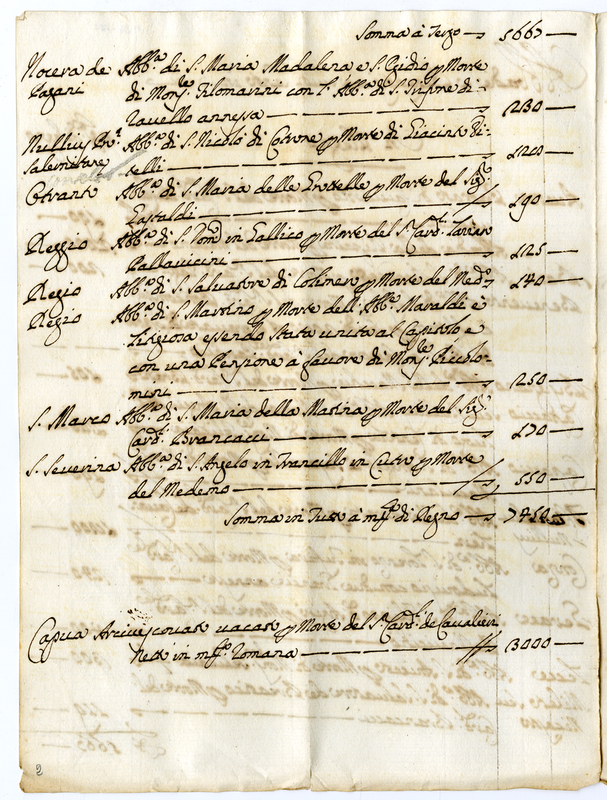 Somma à Tergo 5665
Nocera de Abb.ª di S. Maria Madalena e S. Egidio p Morte
Pagani di Mons.re Filomarini con l'Abb.ª di S. Trifone di
Ravello annessa 230
Nullius Pr.ª Abb.ª di S. Nicolò di Cotrone p Morte di Giacinto
Salernitane telli 120
Otranto Abb.ª di S. Maria delle Grottelle p Morte del Sig.r
Gastaldi 190
Reggio Abb.ª di S. Tom.o in Gallico p Morte del S.r Card.l Lazaro
Pallavicini 125
Regio Abb.ª di S. Salvatore di Colimero p Morte del Med.o 140
Regio Abb.ª di S. Martino p Morte dell'Abb.e Maraldi è
litigiosa essendo stata unita al Capitolo e
con una Pensione à favore di Mons.re Piccolo-
mini 250
S. Marco Abb.ª di S. Maria della Matina p Morte del Sig.r
Card.l Brancacci 170
S. Severina Abb.ª di S. Angelo in Francillo in Cutro p Morte
del Medemo 550
Somma in Tutto à m.ta di Regno 7450
Capua Arcivescovato vacato p Morte del S.r Card.l de Cavalieri
Netto in m.ta Romana 13000
2